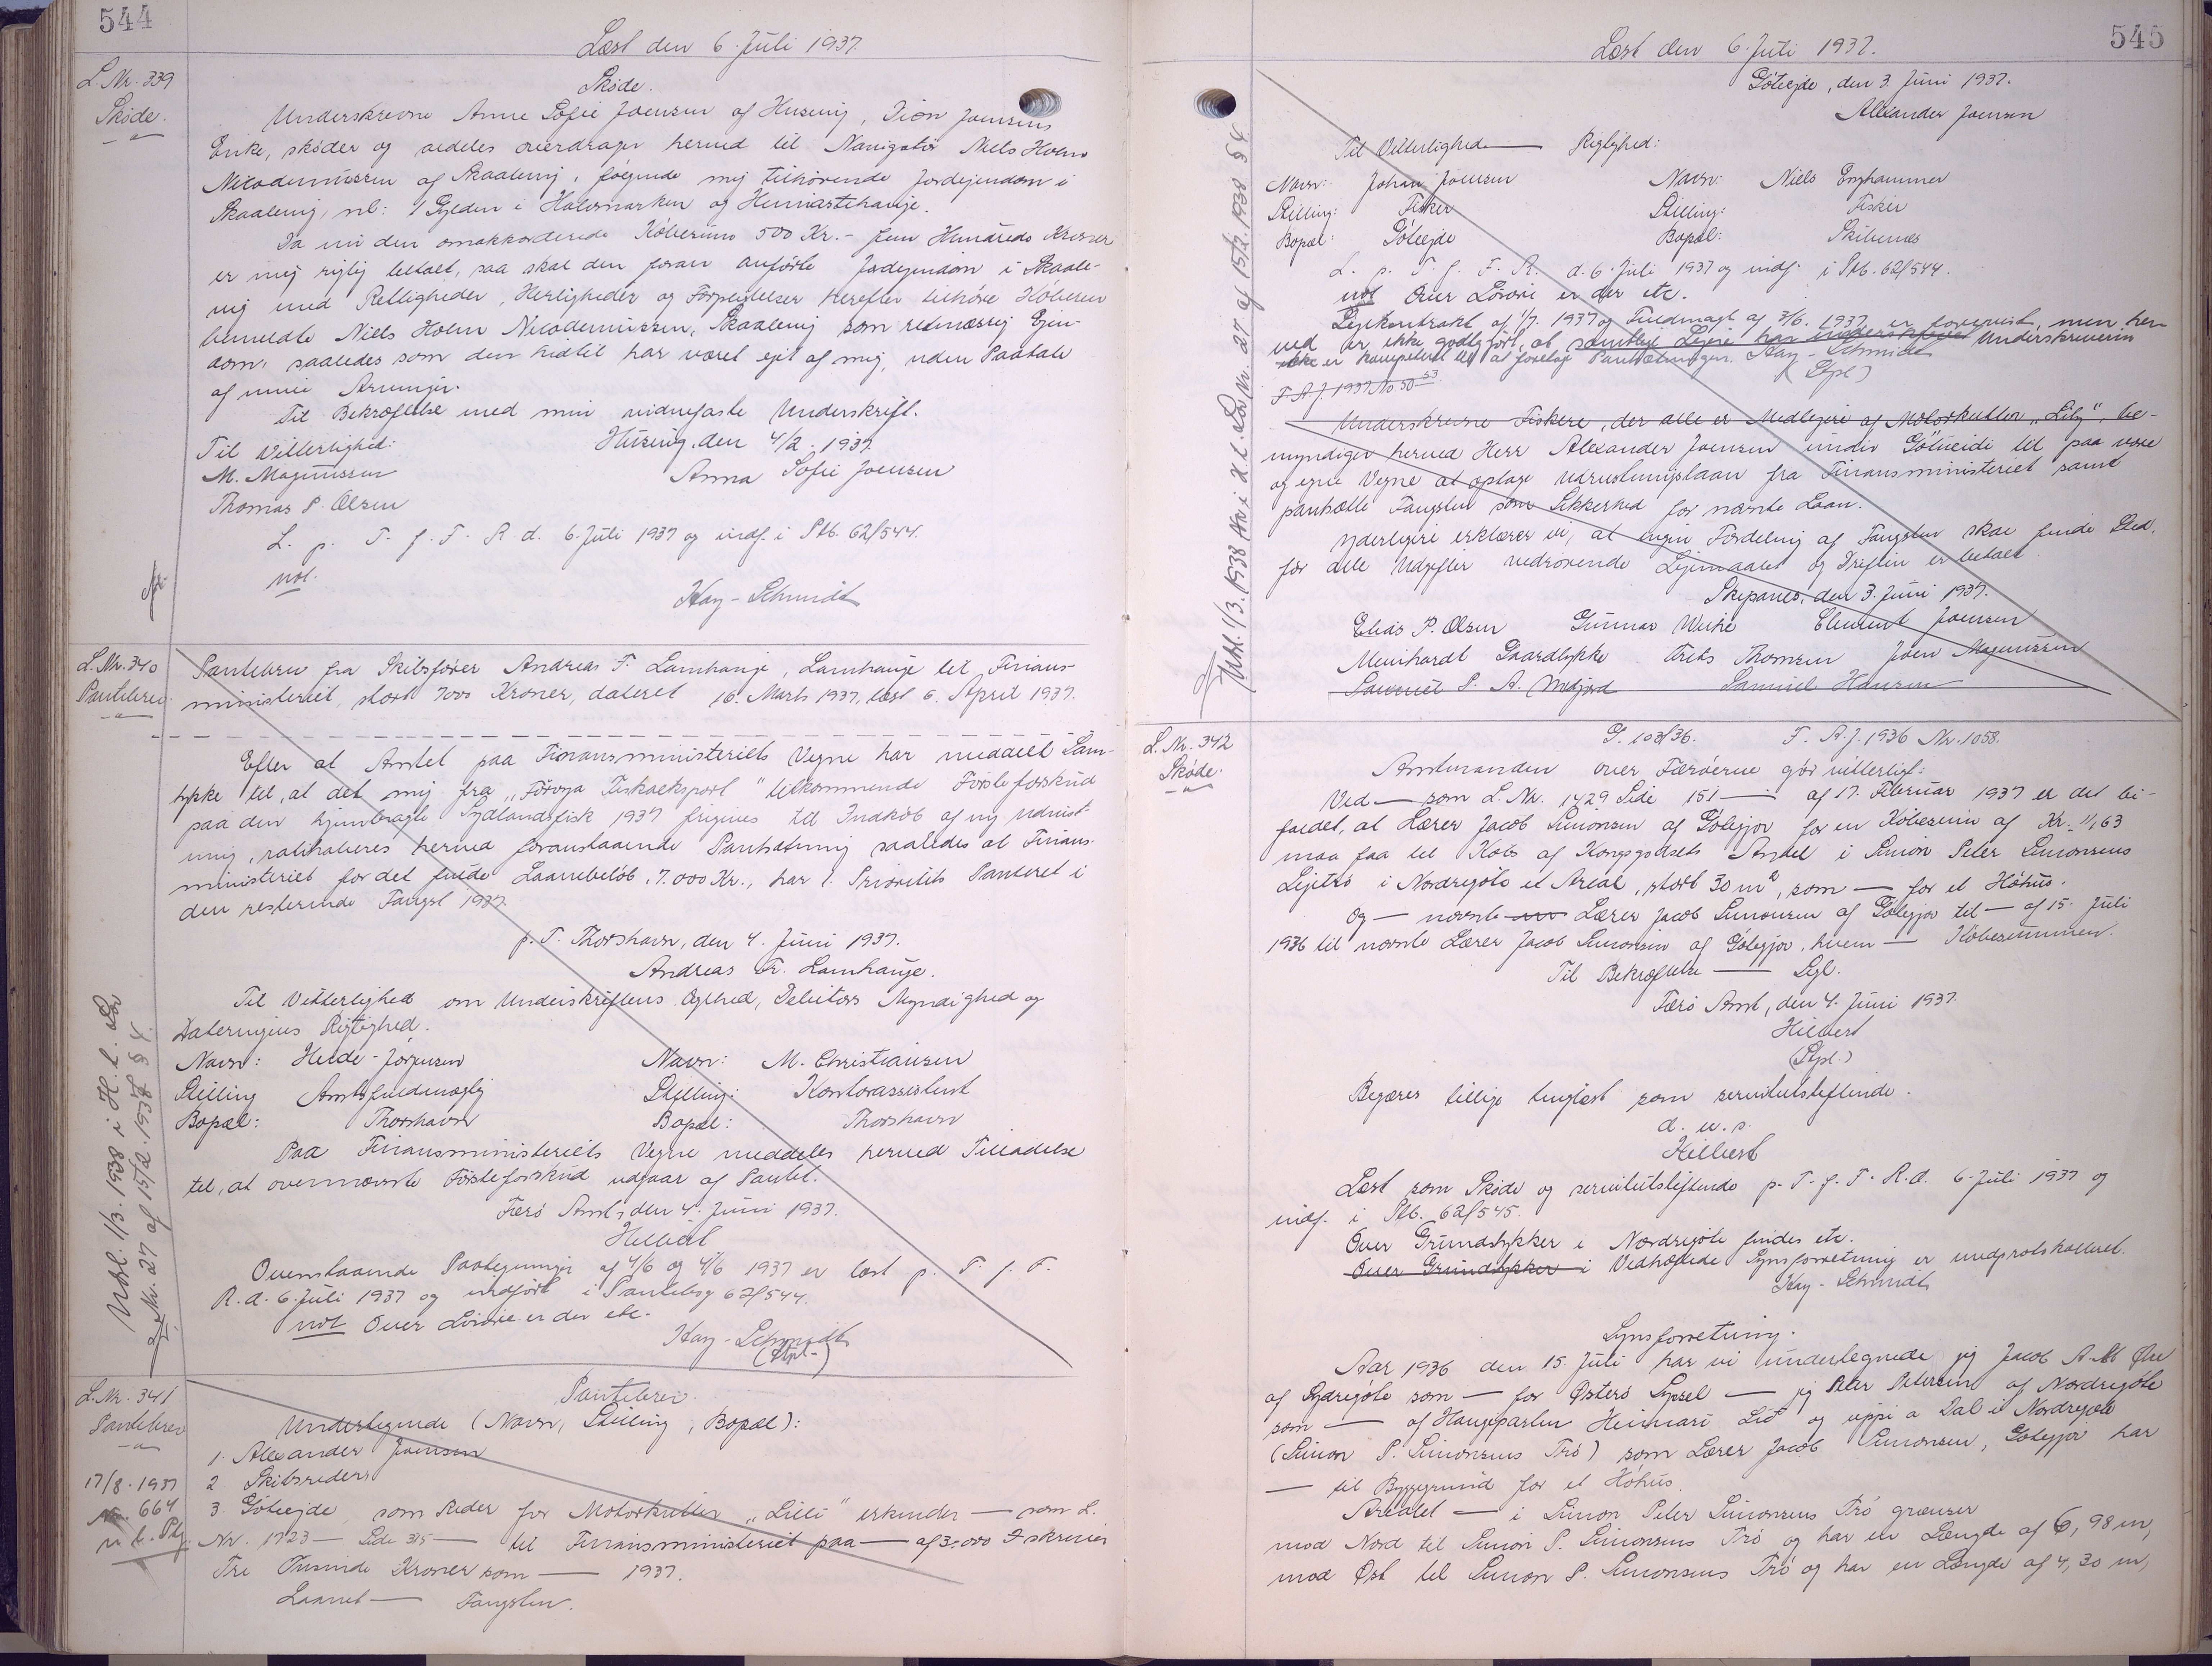 544
Læst den 6. Juli 1937.
L. Nr. 339
Skøde.
Skøde.
Underskrevne Anne Sofie Joensen af Husevig, Dion Joensens
Enke, skøder og aldeles overdrager herved til Navigatør Niels Holm
Nicodemussen af Skaalevig, følgende mig tilhørende Jordejendom i
Skaalevig, nl: 1 Gylden i Halsmarken og Heimastehauge.
Da nu den omakkorderede Købesum 500 Kr. - fem Hundrede Kroner
er mig rigtig betalt, saa skal den foran anførte Jordejendom i Skaale-
vig med Rettigheder, Herligheder og Forpligtelser herefter tilhøre Køberen
bemeldte Niels Holm Nicodemussen, Skaalevig som retmæssig Ejen-
dom, saaledes som den hidtil har været ejet af mig, uden Paatale
af mine Arvinger.
Til Bekræftelse med min vidnefaste Underskrift.
Til Vitterlighed:
Husevig, den 4/2. 1937.
M. Magnussen
Anna Sofie Joensen
Thomas P. Olsen
L. p. T. f. F. R. d. 6. Juli 1937 og indf. i Ptb. 62/544.
not.
Kay-Schmidt
L. Nr. 340
Pantebrev.
Pantebrev fra Skibsfører Andreas F. Lamhauge, Lamhauge til Finans-
ministeriet, stort 7000 Kroner, dateret 16. Marts 1937, læst 6. April 1937.
Efter at Amtet paa Finansministeriets Vegne har meddelt Sam-
tykke til, at det mig fra "Föroya Fiskaeksport" tilkommendeFørsteforskud
paa den hjembragte Sydlandsfisk 1937 frigives til Indkøb af ny Udrust-
ning, ratihaberes herved foranstaaende Pantsætning saaledes at Finans-
ministeriet for det fulde Laanebeløb, 7.000 Kr., har 1. Prioritets Panteret i
den resterende Fangst 1937.
p. T. Thorshavn, den 4. Juni 1937.
Andreas F. Lamhauge.
Til Vitterlighed om Underskriftens Ægthed, Debitors Myndighed og
Dateringens Rigtighed.
Navn: Heide-Jørgensen Navn: M. Christiansen
Stilling Amtsfuldmægtig Stilling: Kontorassistent
Bopæl: Thorshavn Bopæl: Thorshavn
Paa Finansministeriets Vegne meddeles herved Tilladelse
til, at ovennævnte Førsteforskud udgaar af Pantet.
Færø Amt, den 4. Juni 1937.
Hilbert
Ovenstaaende Paategninger af 4/6 og 4/6 1937 er læst p. T. f. F.
R. d. 6. Juli 1937 og indført i Pantebog 62/544.
not Over Løsøre er der etc.
Kay-Schmidt
(Stpl.)
Udsl. 1/3. 1938 i H. t. Lov
Nr. 27 af 15/2. 1938 § 4.
L. Nr. 341
Pantebrev
17/8. 1937
Nr. 664
Pantebrev.
Undertegnede (Navn, Stilling, Bopæl):
1. Alexander Joensen
2. Skibsreder
3. Gøtuejde, som Reder for Motorkutter "Lilli" erkender — som L.
Nr. 1723 — Side 315 — til Finansministeriet paa — af 3.000 Kr skriver
Tre Tusinde Kroner som — 1937.
Laanet — Fangsten.
545
Læst den 6. Juli 1937.
Gøtuejde, den 3. Juni 1937.
Alexander Joensen
Til Vitterlighed — Rigtighed:
Navn: Johan Joensen Navn: Niels Enghammer
Stilling: Fisker Stilling: Fisker
Bopæl: Gøtuejde Bopæl: Skibenæs
L. p. T. f. F. R. d. 6. Juli 1937 og indf. i Ptb. 62/544.
not Over Løsøre er der etc.
Lejekontrakt af 1/7. 1937 og Fuldmagt af 3/6. 1937 er forevist, men her-
ved er ikke godtgjort, at samtlige Lejere har underskrevet Underskriveren
ikke er kompetent til at foretage Pantsætningen. Kay-Schmidt
(Stpl.)
F. A. J. 1937 No 50
Underskrevne Fiskere, der alle er Medlejere af Motorkutter "Lily", be-
myndiger herved Herr Alexander Joensen under Gøtueidi til paa vore
og egne Vegne at optage Udrustningslaan fra Finansministeriet samt
pantsætte Fangsten som Sikkerhed for nævnte Laan.
Yderligere erklærer vi, at ingen Fordeling af Fangsten skal finde Sted,
før alle Udgifter vedrørende Lejemaalet og Driften er betalt.
Skipanes, den 3. Juni 1937.
Elias P. Olsen Gunnar Weihe Clement Joensen
Meinhardt Gaardlykke Niels Thomsen Joen Magnussen
Samuel P. A. Midjord Samuel Hansen
Udsl. 1/3. 1938 Nr. i H. t. Lov Nr. 27 af 15/2. 1938 § 4.
L. Nr. 342
Skøde.
G. 103/36. F. A. J. 1936 Nr. 1058.
Amtmanden over Færøerne gør vitterligt:
Ved — som L. Nr. 1429 Side 151 — af 17. Februar 1937 er det bi-
faldet, at Lærer Jacob Simonsen af Gøtegjov for en Købesum af Kr. 11,63
maa faa til Købs af Kongsgodsets Andel i Simon Peter Simonsens
Lejetrö i Nordregøte et Areal, stort 30 m², som — for et Høhus.
Og — nævnte Lærer Jacob Simonsen af Gøtegjov til — af 15. Juli
1936 til nævnte Lærer Jacob Simonsen af Gøtegjov, hvem — Købesummen.
Til Bekræftelse — Segl.
Færø Amt, den 4. Juni 1937.
Hilbert
(Stpl.)
Begæres tillige tinglæst som servitutstiftende.
d. u. s.
Hilbert
Læst som Skøde og servitutstiftende p. T. f. F. R. d. 6. Juli 1937 og
indf. i Ptb. 62/545.
Over Grundstykker i Nordregøte findes etc.
Over Grundstykker i Vedhæftede Synsforretning er medprotokolleret.
Kay-Schmidt
Synsforretning.
Aar 1936 den 15. Juli har vi undertegnede jeg Jacob A. M
af Sydregøte som — for Østerø Syssel — jeg Peter Petersen af Nordregøte
som — af Haugeparten Heimari Lid og uppi a Dal i Nordregøte
(Simon P. Simonsens Trö) som Lærer Jacob Simonsen, Gøtegjov har
— til Byggegrund for et Høhus.
Arealet — i Simon Peter Simonsens Trö grænser
mod Nord til Simon P. Simonsens Trö og har en Længde af 6,98 m,
mod Øst til Simon P. Simonsens Trö og har en Længde af 4,30 m,